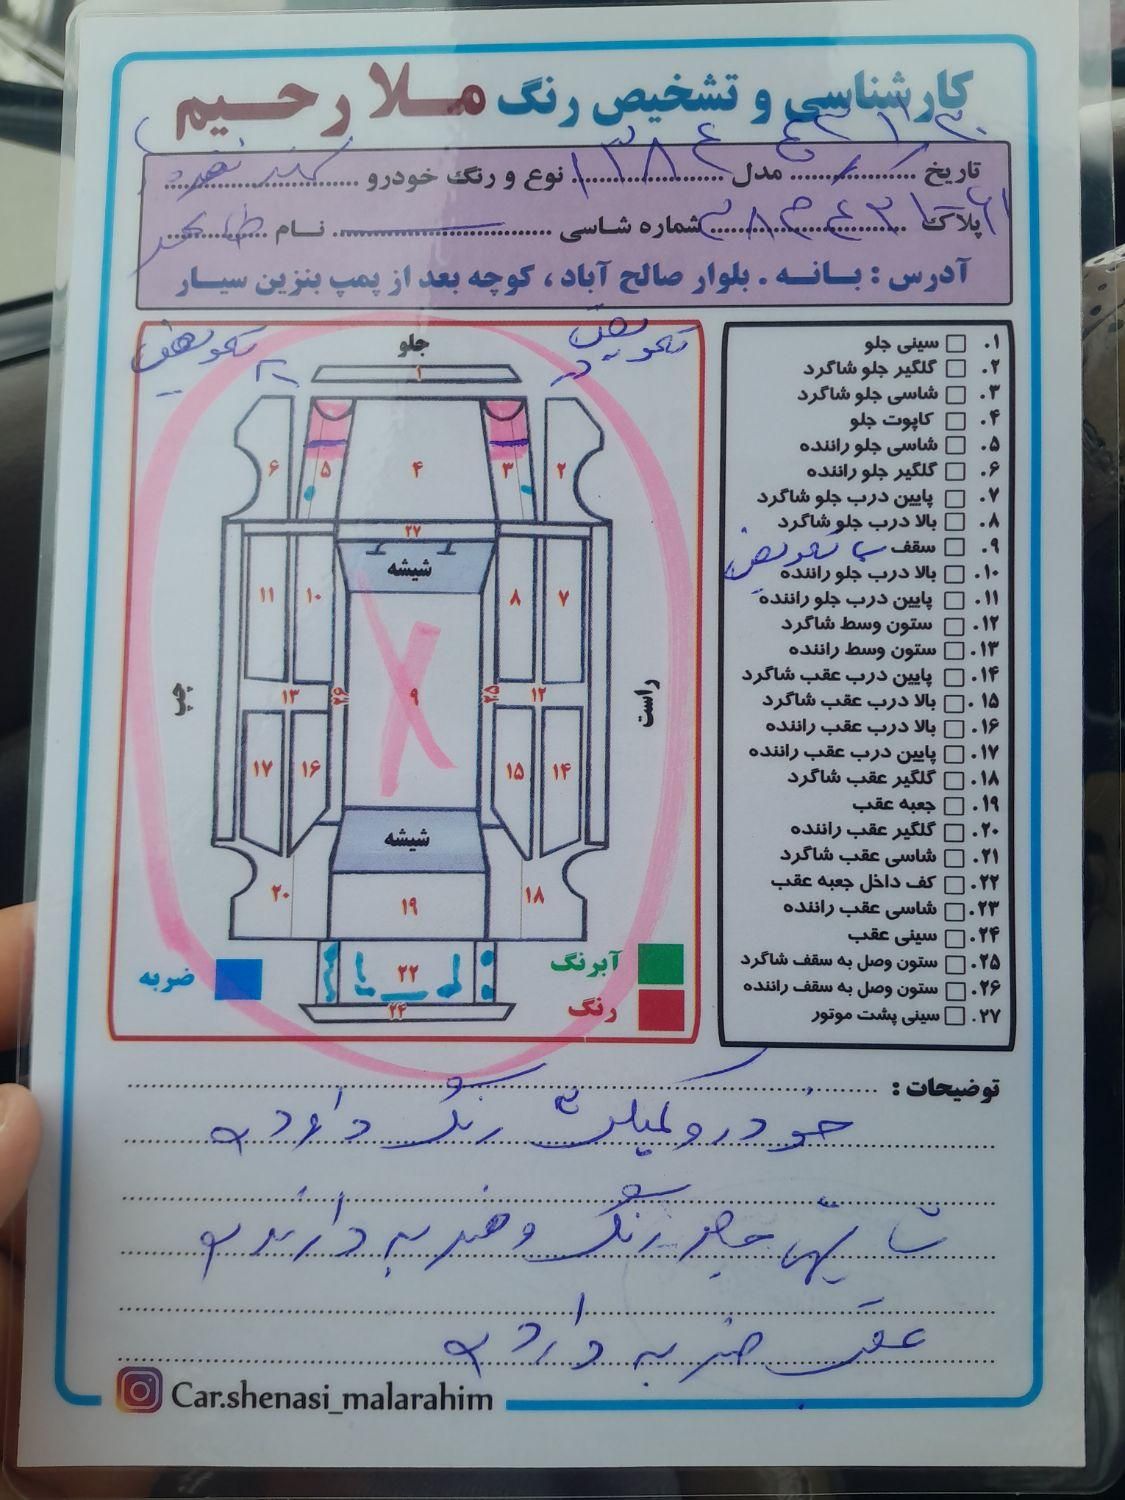 کارشناسی و تشخیص رنگ ملا رحیم
تاریخ مدل ۱۳۸۴ نوع و رنگ خودرو سمند نقره‌ای
پلاک شماره شاسی نام
آدرس : بـانـه . بلوار صالح آباد ، کوچه بعد از پمپ بنزین سیار
تعویض
تعویض
جلو
۱
۶ ۵ ۴ ۳ ۲
۲۷
شیشه
۱۱ ۱۰ ۸ ۷
چپ
راست
۱۳ ۲۶ ۹ ۲۵ ۱۲
۱۷ ۱۶ ۱۵ ۱۴
شیشه
۲۰ ۱۹ ۱۸
۲۲
۲۴
ضربه
آبرنگ
رنگ
۱. سینی جلو
۲. گلگیر جلو شاگرد
۳. شاسی جلو شاگرد
۴. کاپوت جلو
۵. شاسی جلو راننده
۶. گلگیر جلو راننده
۷. پایین درب جلو شاگرد
۸. بالا درب جلو شاگرد
۹. سقف تعویض
۱۰. بالا درب جلو راننده
۱۱. پایین درب جلو راننده
۱۲. ستون وسط شاگرد
۱۳. ستون وسط راننده
۱۴. پایین درب عقب شاگرد
۱۵. بالا درب عقب شاگرد
۱۶. بالا درب عقب راننده
۱۷. پایین درب عقب راننده
۱۸. گلگیر عقب شاگرد
۱۹. جعبه عقب
۲۰. گلگیر عقب راننده
۲۱. شاسی عقب شاگرد
۲۲. کف داخل جعبه عقب
۲۳. شاسی عقب راننده
۲۴. سینی عقب
۲۵. ستون وصل به سقف شاگرد
۲۶. ستون وصل به سقف راننده
۲۷. سینی پشت موتور
توضیحات :
خودرو کامل رنگ دارد
شاسی جلو رنگ و ضربه دارند
عقب ضربه دارد
Car.shenasi_malarahim